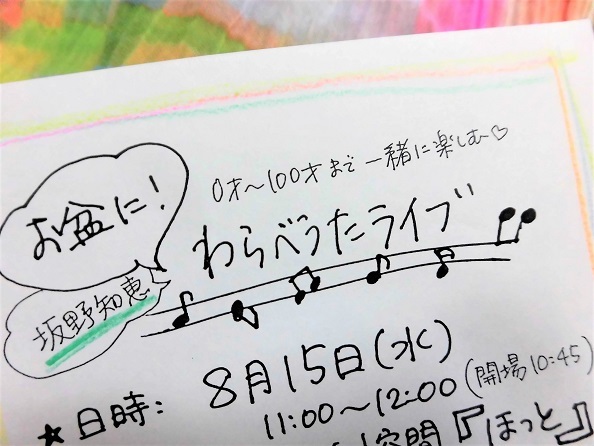 お盆に!
坂野知恵
0才~100才まで一緒に楽しむ♡
わらべうたライブ
★日時: 8月15日(水)
11:00~12:00(開場10:45)
空間『ほっと』